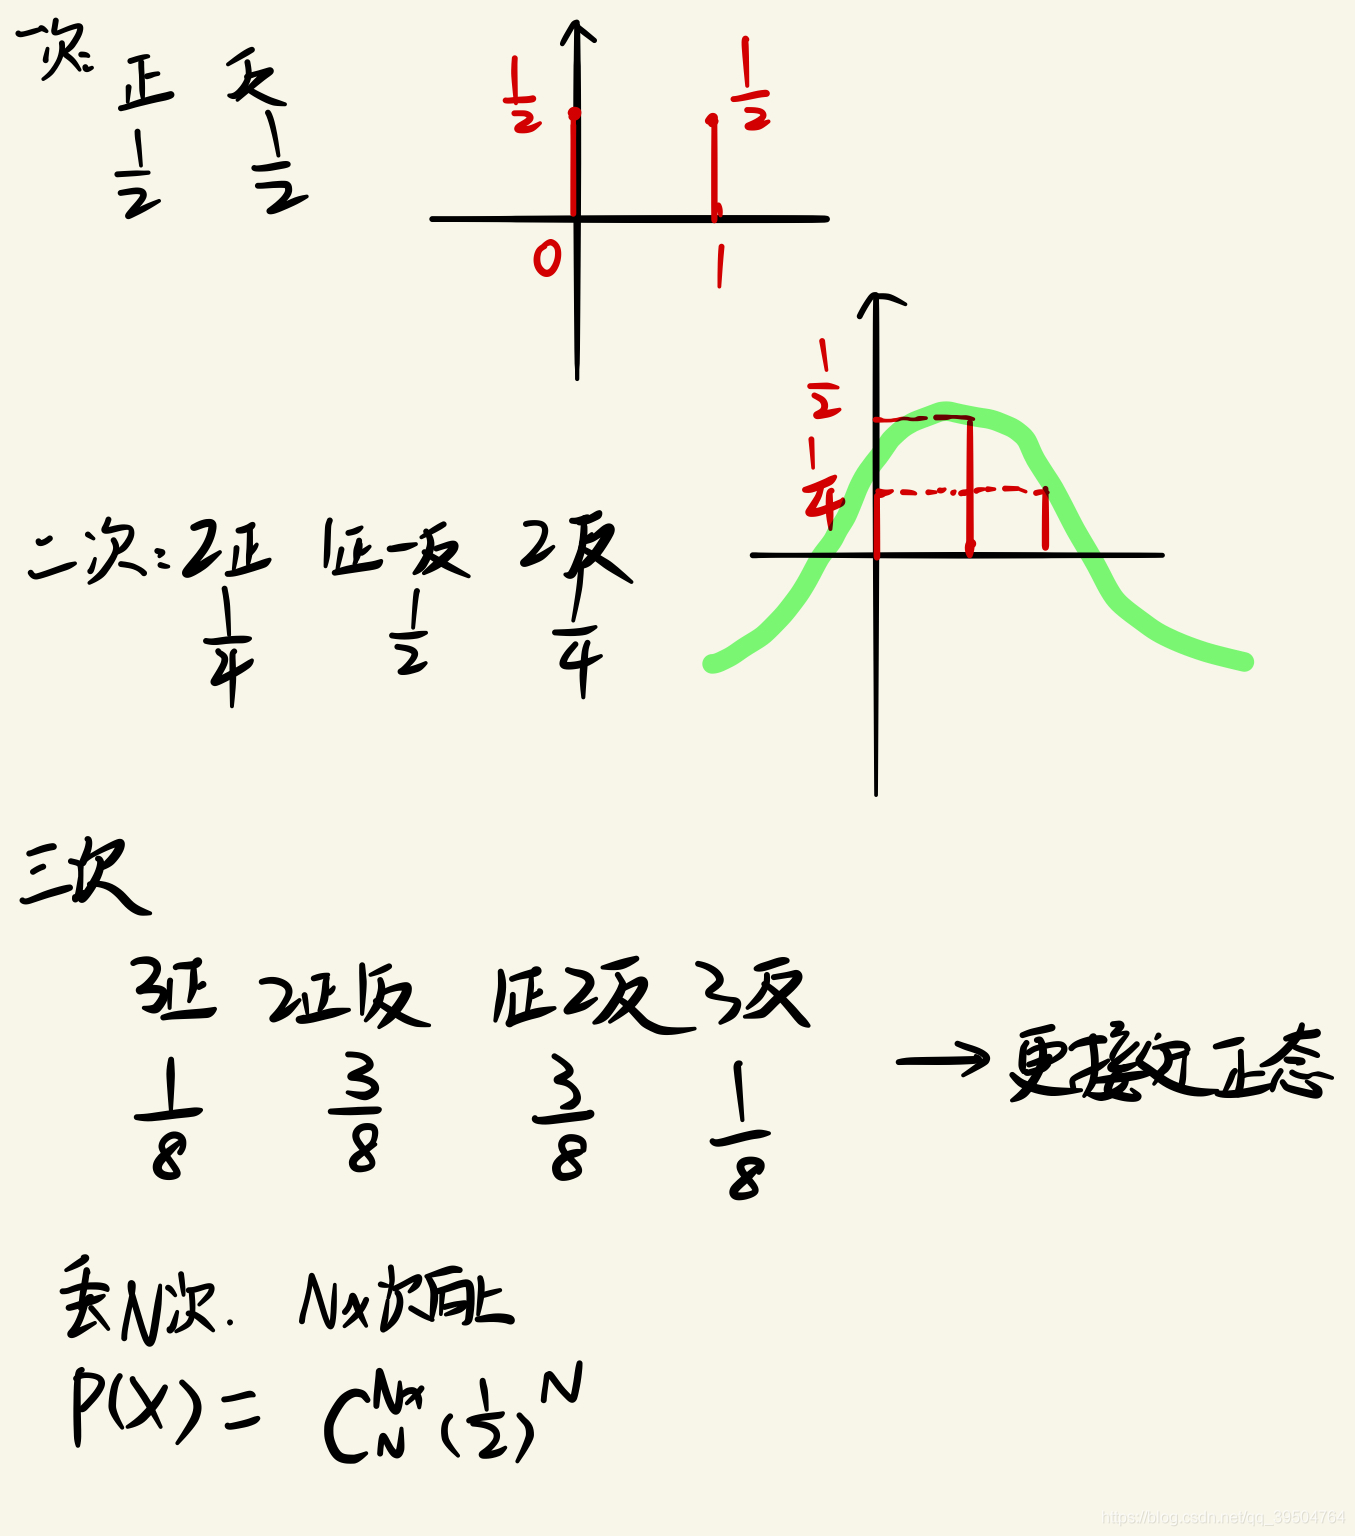 一次:
正 反
1/2 1/2
1/2 1/2
0 1
1/2
1/4
二次: 2正 1正一反 2反
1/4 1/2 1/4
三次
3正 2正1反 1正2反 3反
1/8 3/8 3/8 1/8
→ 更接近正态
丢N次. Nx次向上
P(X) = C_N^{Nx} (1/2)^N
https://blog.csdn.net/qq_39504764